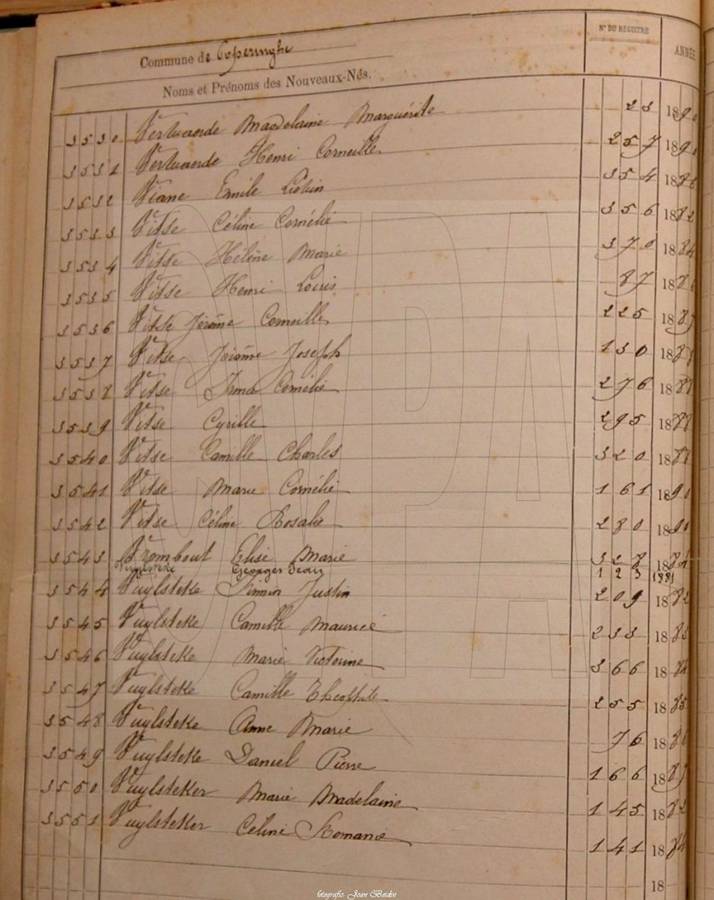 Commune de Poperinghe
Noms et Prénoms des Nouveaux-Nés.
N° DU REGISTRE
ANNÉE
3530 Verhaeghe Magdelaine Marguérite 23 1890
3531 Henri Corneille 257 1890
3532 Viane Emile 354 18
3533 Vitse Céline Cornélie 356 1882
3534 Vitse Hélène Marie 370 1884
3535 Vitse Henri Louis 87 188
3536 Vitse Jérôme Corneille 225 1887
3537 Vitse Jérôme Joseph 130 188
3538 Vitse Irma Cornélie 276 188
3539 Vitse Cyrille 295 188
3540 Vitse Camille Charles 320 188
3541 Vitse Marie Cornélie 161 1890
3542 Vitse Céline Rosalie 280 1890
3543 Vrombout Elise Marie 328 188
Vuylsteke Georges 123 1881
3544 Vuylsteke Justin 209 1882
3545 Vuylsteke Camille Maurice 233 188
3546 Vuylsteke Marie Victorine 366 188
3547 Vuylsteke Camille Théophile 255 188
3548 Vuylsteke Anne Marie 76 188
3549 Vuylsteke Daniel Pierre 166 1887
3550 Vuylsteker Marie Madelaine 145 1882
3551 Vuylsteker Céline Romanie 141 188
18
fotografie: Joan Barden